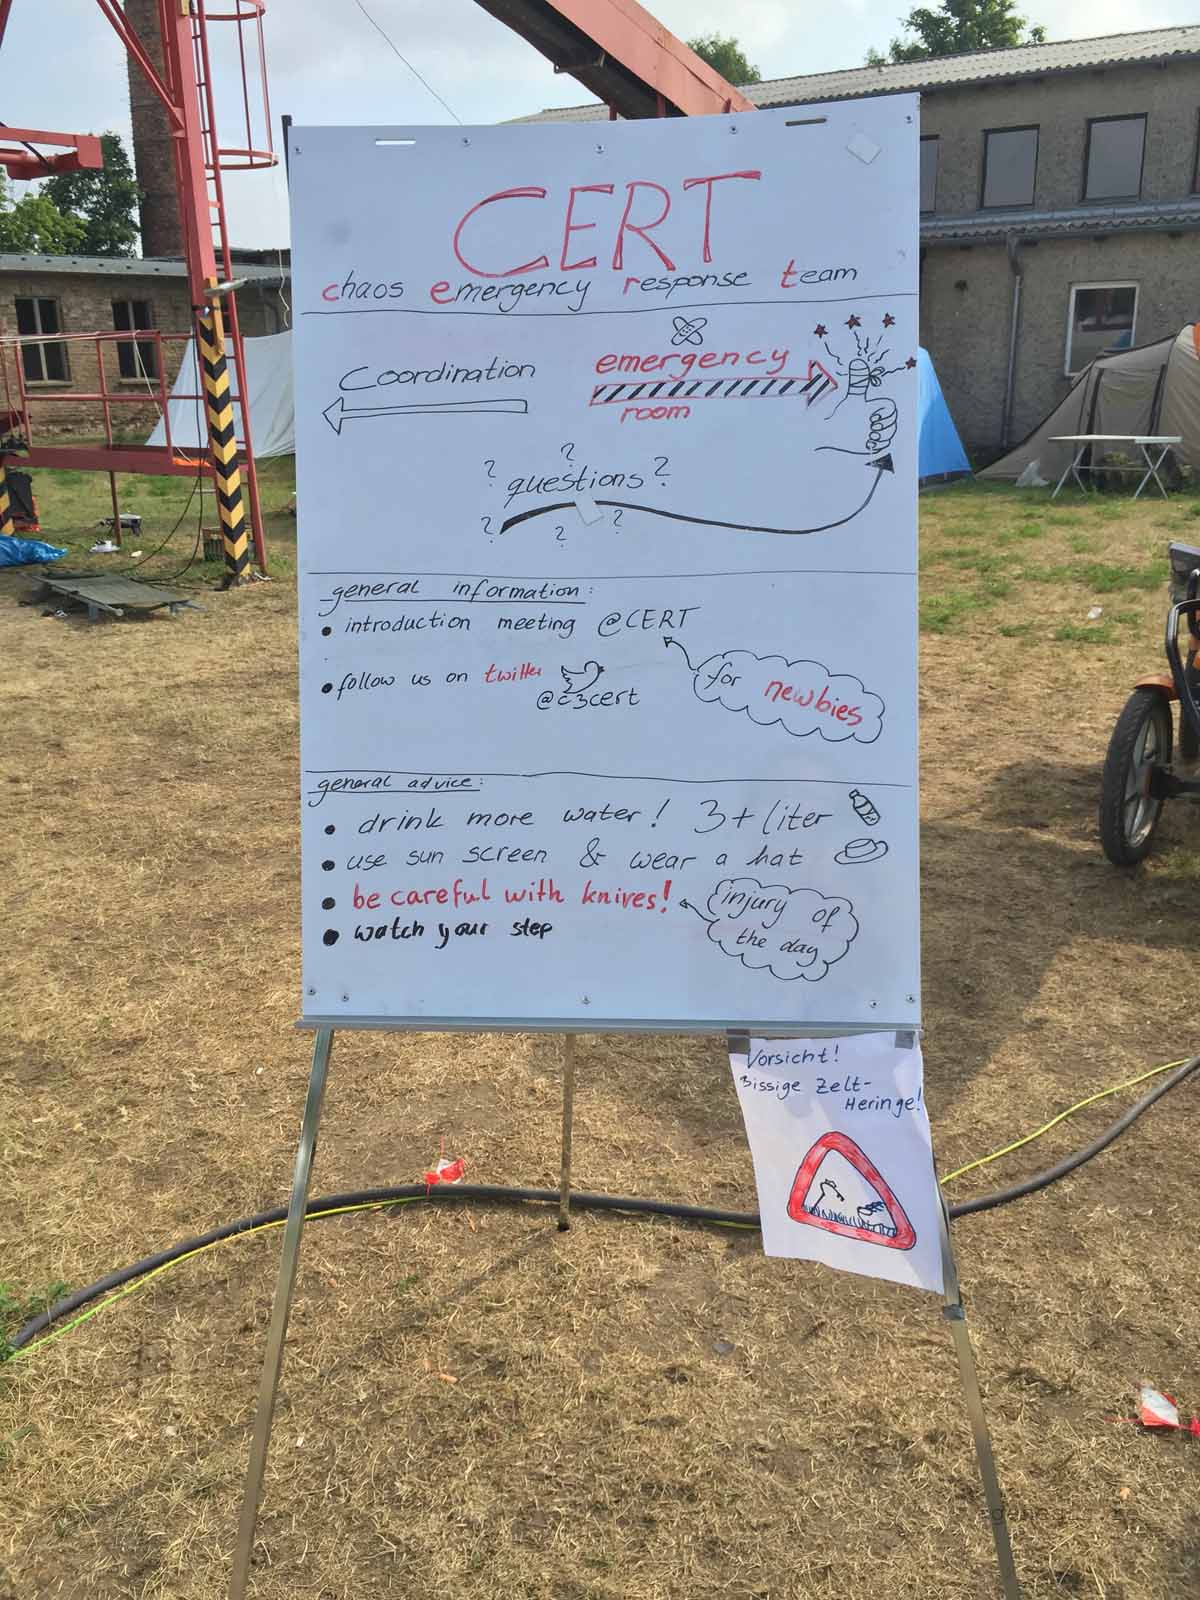 CERT
chaos emergency response team
Coordination
emergency
room
? ? ?
questions
? ? ?
general information:
• introduction meeting @CERT
• follow us on twitter
@c3cert
for newbies
general advice:
• drink more water! 3+ liter
• use sun screen & wear a hat
• be careful with knives!
injury of
the day
• watch your step
Vorsicht!
Bissige Zelt-
Heringe!